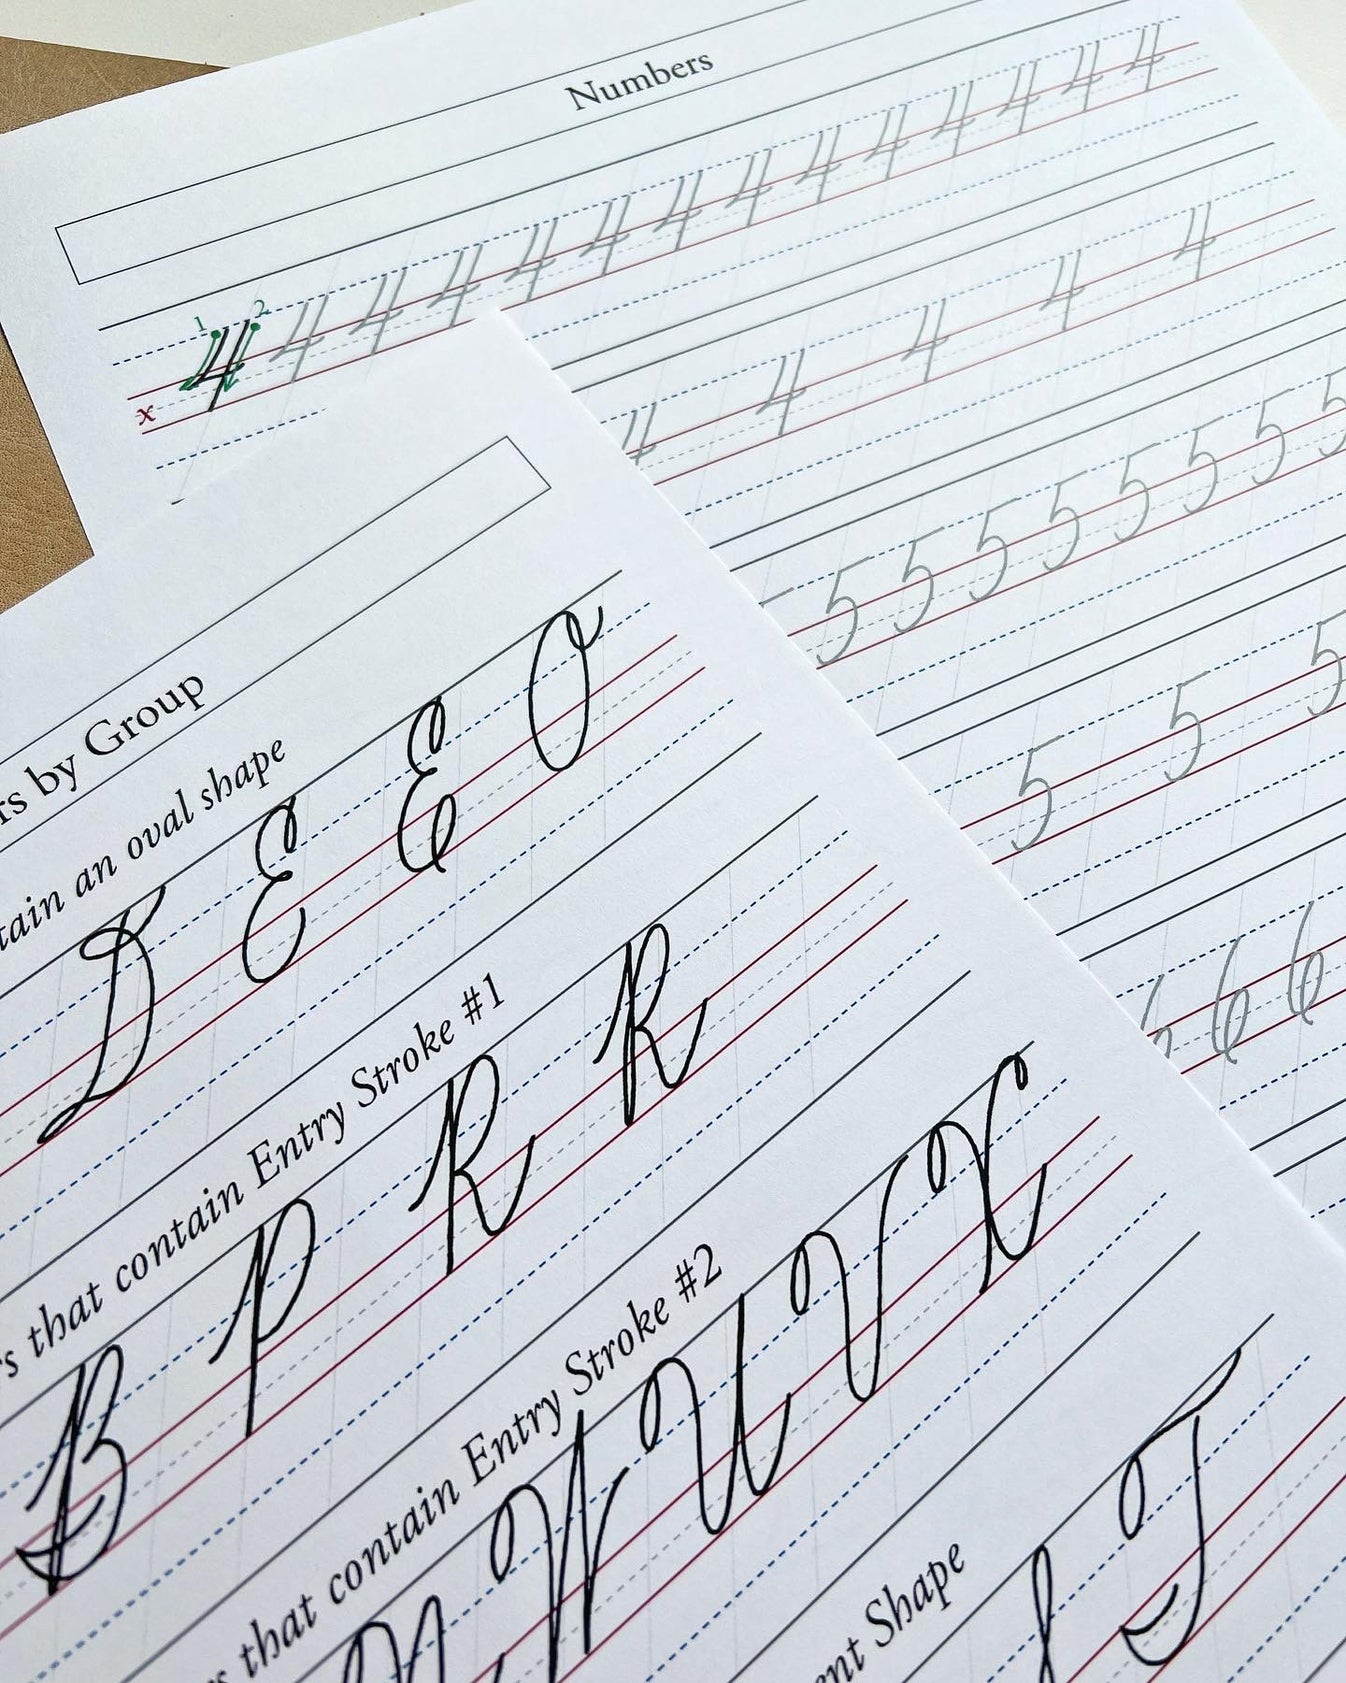 Numbers
1 2
4 4 4 4 4 4 4 4 4 4 4 4 4 4
x
4 4 4 4 4
5 5 5 5 5 5 5 5
5 5 5
6 6 6
by Group
an oval shape
D E E O
that contain Entry Stroke #1
B P R R
that contain Entry Stroke #2
U V X
Shape
T